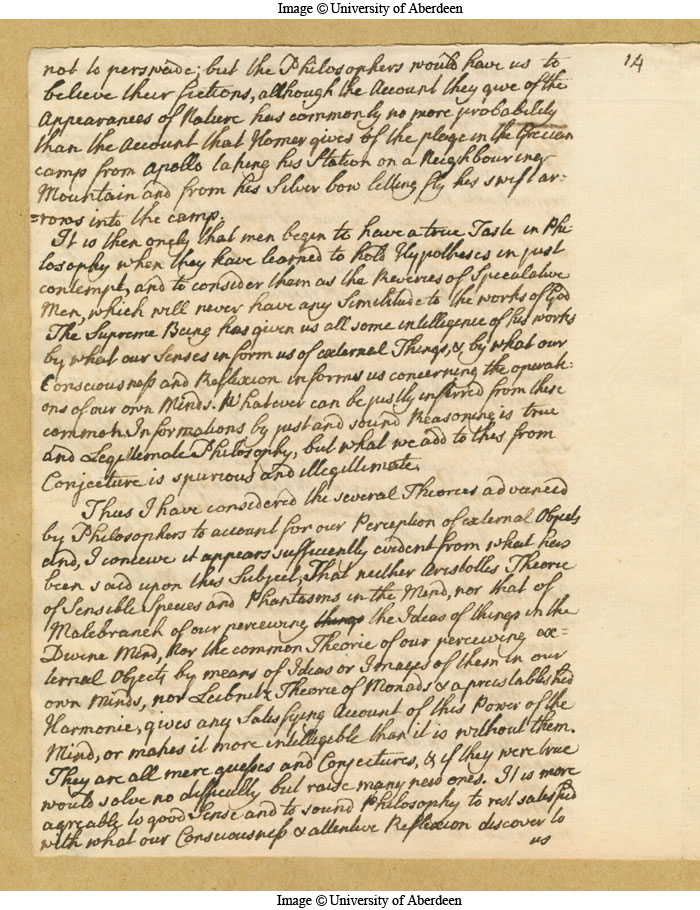 Image © University of Aberdeen
14
not to perswade; but the Philosophers would have us to
believe their fictions, although the Account they give of the
Appearances of Nature has commonly no more probability
than the Account that Homer gives of the plage in the Grecian
camp from Apollo taking his Station on a Neighbouring
Mountain and from his Silver bow letting fly his swift ar=
=rows into the camp.
It is then onely that men begin to have a true Taste in Phi-
losophy when they have learned to hold Hypotheses in just
contempt, and to consider them as the Reveries of Speculative
Men, which will never have any Similitude to the works of God
The Supreme Being has given us all some intelligence of his works
by what our Senses inform us of external Things, & by what our
Consciousness and Reflexion informs us concerning the operati-
ons of our own Minds. Whatever can be justly inferred from these
common Informations by just and sound Reasoning is true
and Legittemate Philosophy, but what we add to this from
Conjecture is spurious and illegittimate.
Thus I have considered the several Theories advanced
by Philosophers to account for our Perception of external Objects
and, I conceive it appears sufficiently evident from what has
been said upon this Subject, That neither Aristotles Theorie
of Sensible Species and Phantasms in the Mind, nor that of
Malebranch of our perceiving things the Ideas of things in the
Divine Mind, Nor the common Theorie of our perceiving ex=
ternal Objects by means of Ideas or Images of them in our
own Minds, nor Leibnitz Theorie of Monads & a preestablished
Harmonie, gives any Satisfying Account of this Power of the
Mind, or makes it more intelligible than it is without them.
They are all mere guesses and Conjectures, & if they were true
would solve no difficulty but raise many new ones. It is more
agreable to good Sense and to sound Philosophy to rest satisfied
with what our Consciousness & attentive Reflexion discover to
us
Image © University of Aberdeen